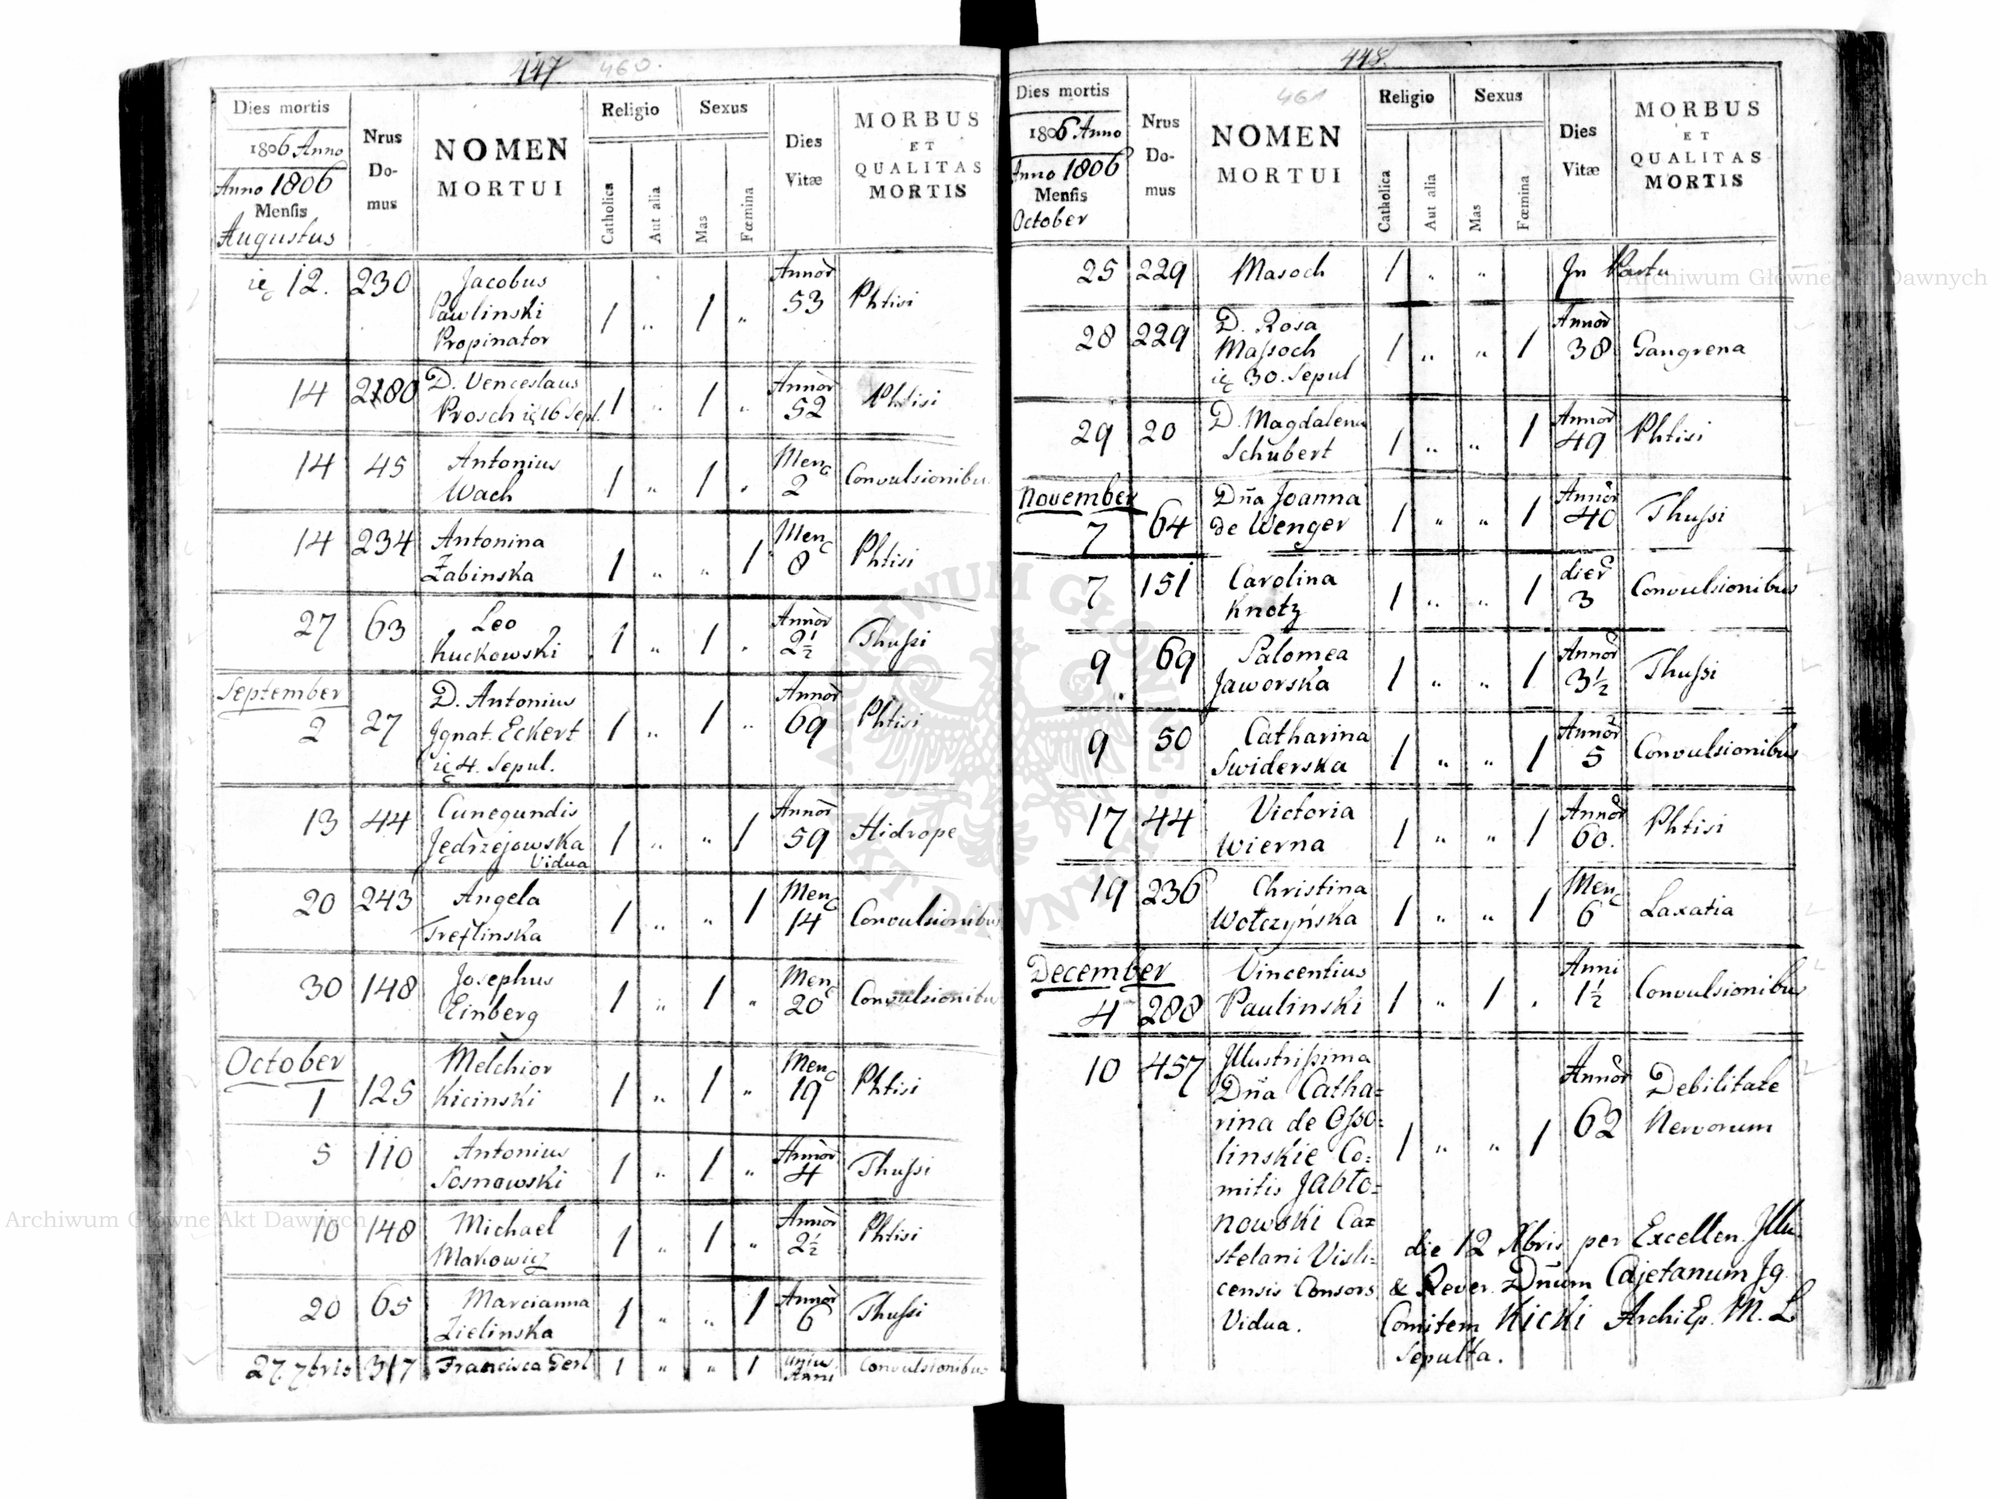 447 460.
Dies mortis
1806 Anno
Anno 1806
Mensis
Augustus
Nrus
Do-
mus
NOMEN
MORTUI
Religio
Catholica
Aut alia
Sexus
Mas
Fœmina
Dies
Vitæ
MORBUS
ET
QUALITAS
MORTIS
12. 230 Jacobus 1 „ 1 „ Annor 53 Phtisi
Pawlinski
Propinator
14 2180 D. Venceslaus 1 „ 1 „ Annor 52 Phtisi
Prosch 16 Sepl.
14 45 Antonius 1 „ 1 „ Menc 2 Convulsionibu
Wach
14 234 Antonina 1 „ „ 1 Menc 8 Phtisi
Zabinska
27 63 Leo 1 „ 1 „ Annor 2½ Thussi
Kuckowski
September
2 27 D. Antonius 1 „ 1 „ Annor 69 Phtisi
Ignat. Eckert
4. Sepul.
13 44 Cunegundis 1 „ „ 1 Annor 59 Hidrope
Jędrzejowska
Vidua
20 243 Angela 1 „ „ 1 Menc 14 Convulsionibus
Treflinska
30 148 Josephus 1 „ 1 „ Menc 20 Convulsionibu
Einberg
October
1 125 Melchior 1 „ 1 „ Menc 19 Phtisi
Kicinski
5 110 Antonius 1 „ 1 „ Annor 4 Thussi
Sosnowski
10 148 Michael 1 „ 1 „ Annor 2½ Phtisi
Makowicz
20 65 Marcianna 1 „ „ 1 Annor 6 Thussi
Zielinska
27. 7bris 317 Francisca Gerl 1 „ „ 1 unius Anni Convulsionibus
448
461
Dies mortis
1806 Anno
Anno 1806
Mensis
October
Nrus
Do-
mus
NOMEN
MORTUI
Religio
Catholica
Aut alia
Sexus
Mas
Fœmina
Dies
Vitæ
MORBUS
ET
QUALITAS
MORTIS
25 229 Masoch 1 „ „ In Partu
28 229 D. Rosa 1 „ „ 1 Annor 38 Gangrena
Massoch
30. Sepul
29 20 D. Magdalena 1 „ „ 1 Annor 49 Phtisi
Schubert
November
7 64 Dña Joanna 1 „ „ 1 Annor 40 Thussi
de Wenger
7 151 Carolina 1 „ „ 1 dier 3 Convulsionibus
Knotz
9 69 Salomea 1 „ „ 1 Annor 3½ Thussi
Jaworska
9 50 Catharina 1 „ „ 1 Annor 5 Convulsionibus
Swiderska
17 44 Victoria 1 „ „ 1 Annor 60. Phtisi
Wierna
19 236 Christina 1 „ „ 1 Menc 6 Laxatia
Wołczyńska
December
4 288 Vincentius 1 „ 1 „ Anni 1½ Convulsionibus
Paulinski
10 457 Illustrissima 1 „ „ 1 Annor 62 Debilitate
Nervorum
Dña Catha=
rina de Osso=
linskie Co=
mitis Jabło=
nowski Cas
stelani Visli=
censis Consors
Vidua.
die 12 Xbris per Excellen. Illu.
& Rever. Dñum Cajetanum Ig.
Comitem Kicki ArchiEp. M. L
Sepulta.
Archiwum Główne Akt Dawnych
Archiwum Główne Akt Dawnych
ARCHIWUM GŁÓWNE AKT DAWNYCH